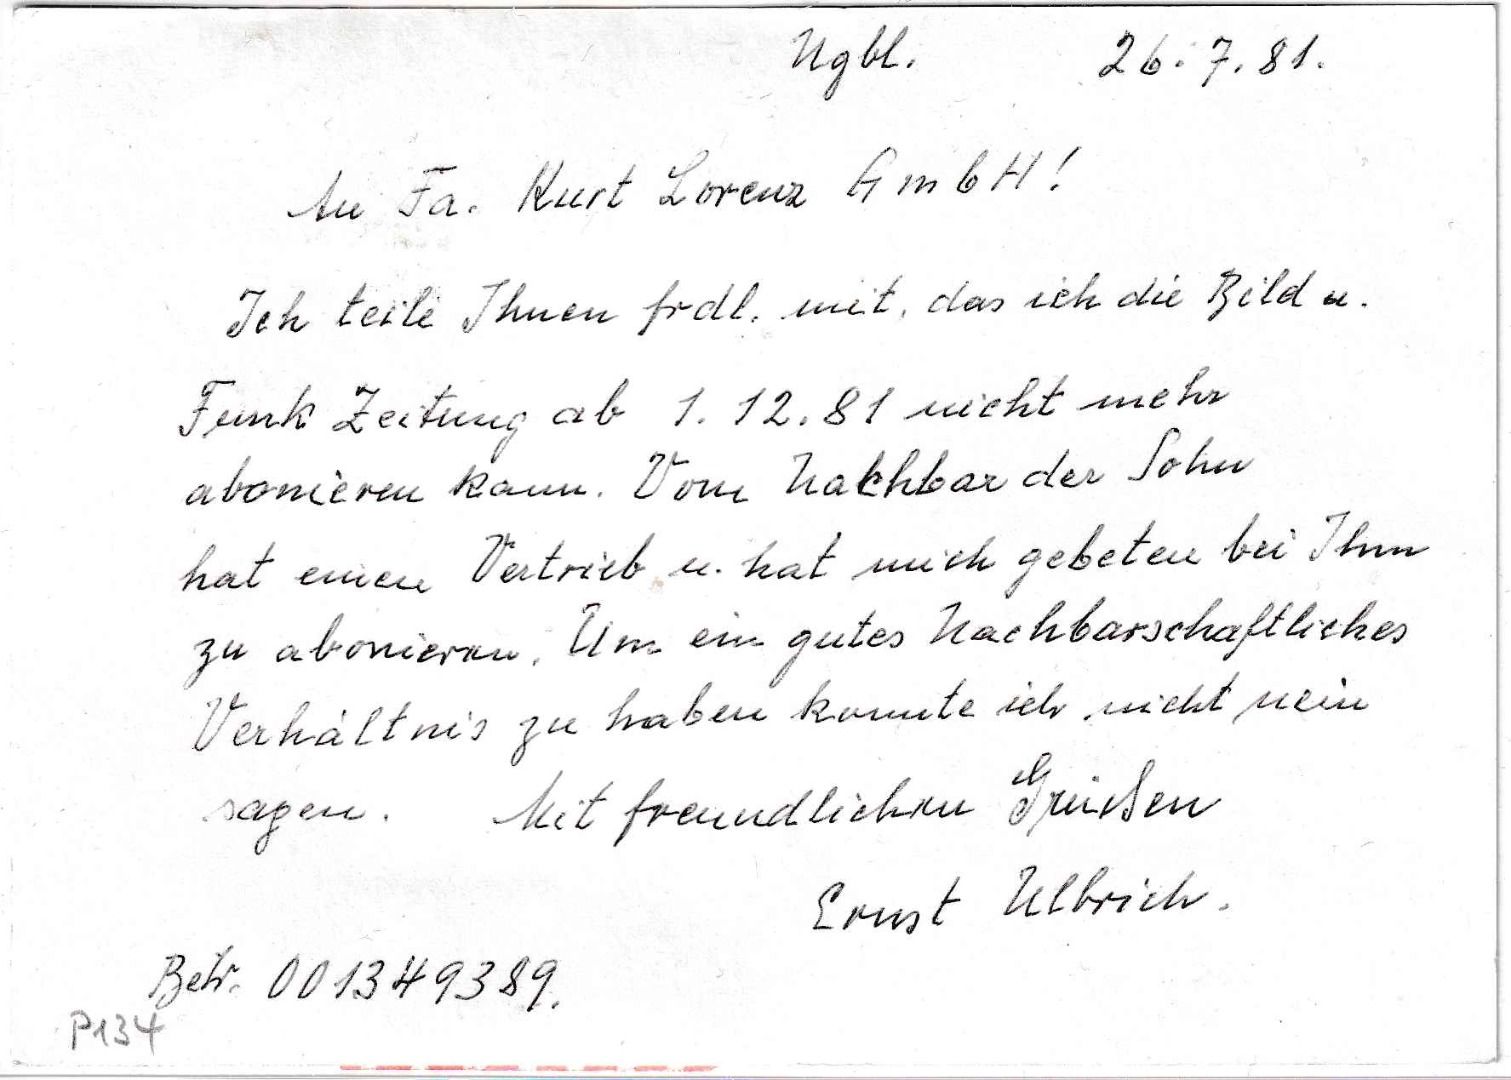 Ngbl. 26.7.81.
An Fa. Kurt Lorenz GmbH!
Ich teile Ihnen frdl. mit, das ich die Bild u.
Funk Zeitung ab 1.12.81 nicht mehr
abonieren kann. Vom Nachbar der Sohn
hat einen Vertrieb u. hat mich gebeten bei Ihm
zu abonieren. Um ein gutes Nachbarschaftliches
Verhältnis zu haben konnte ich nicht nein
sagen. Mit freundlichen Grüßen
Ernst Ulbrich.
Betr. 001349389.
P134